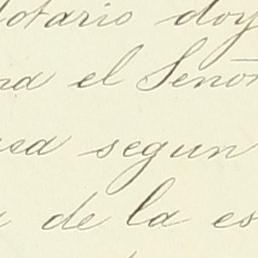 notario doy
el Señor
segun
de la es